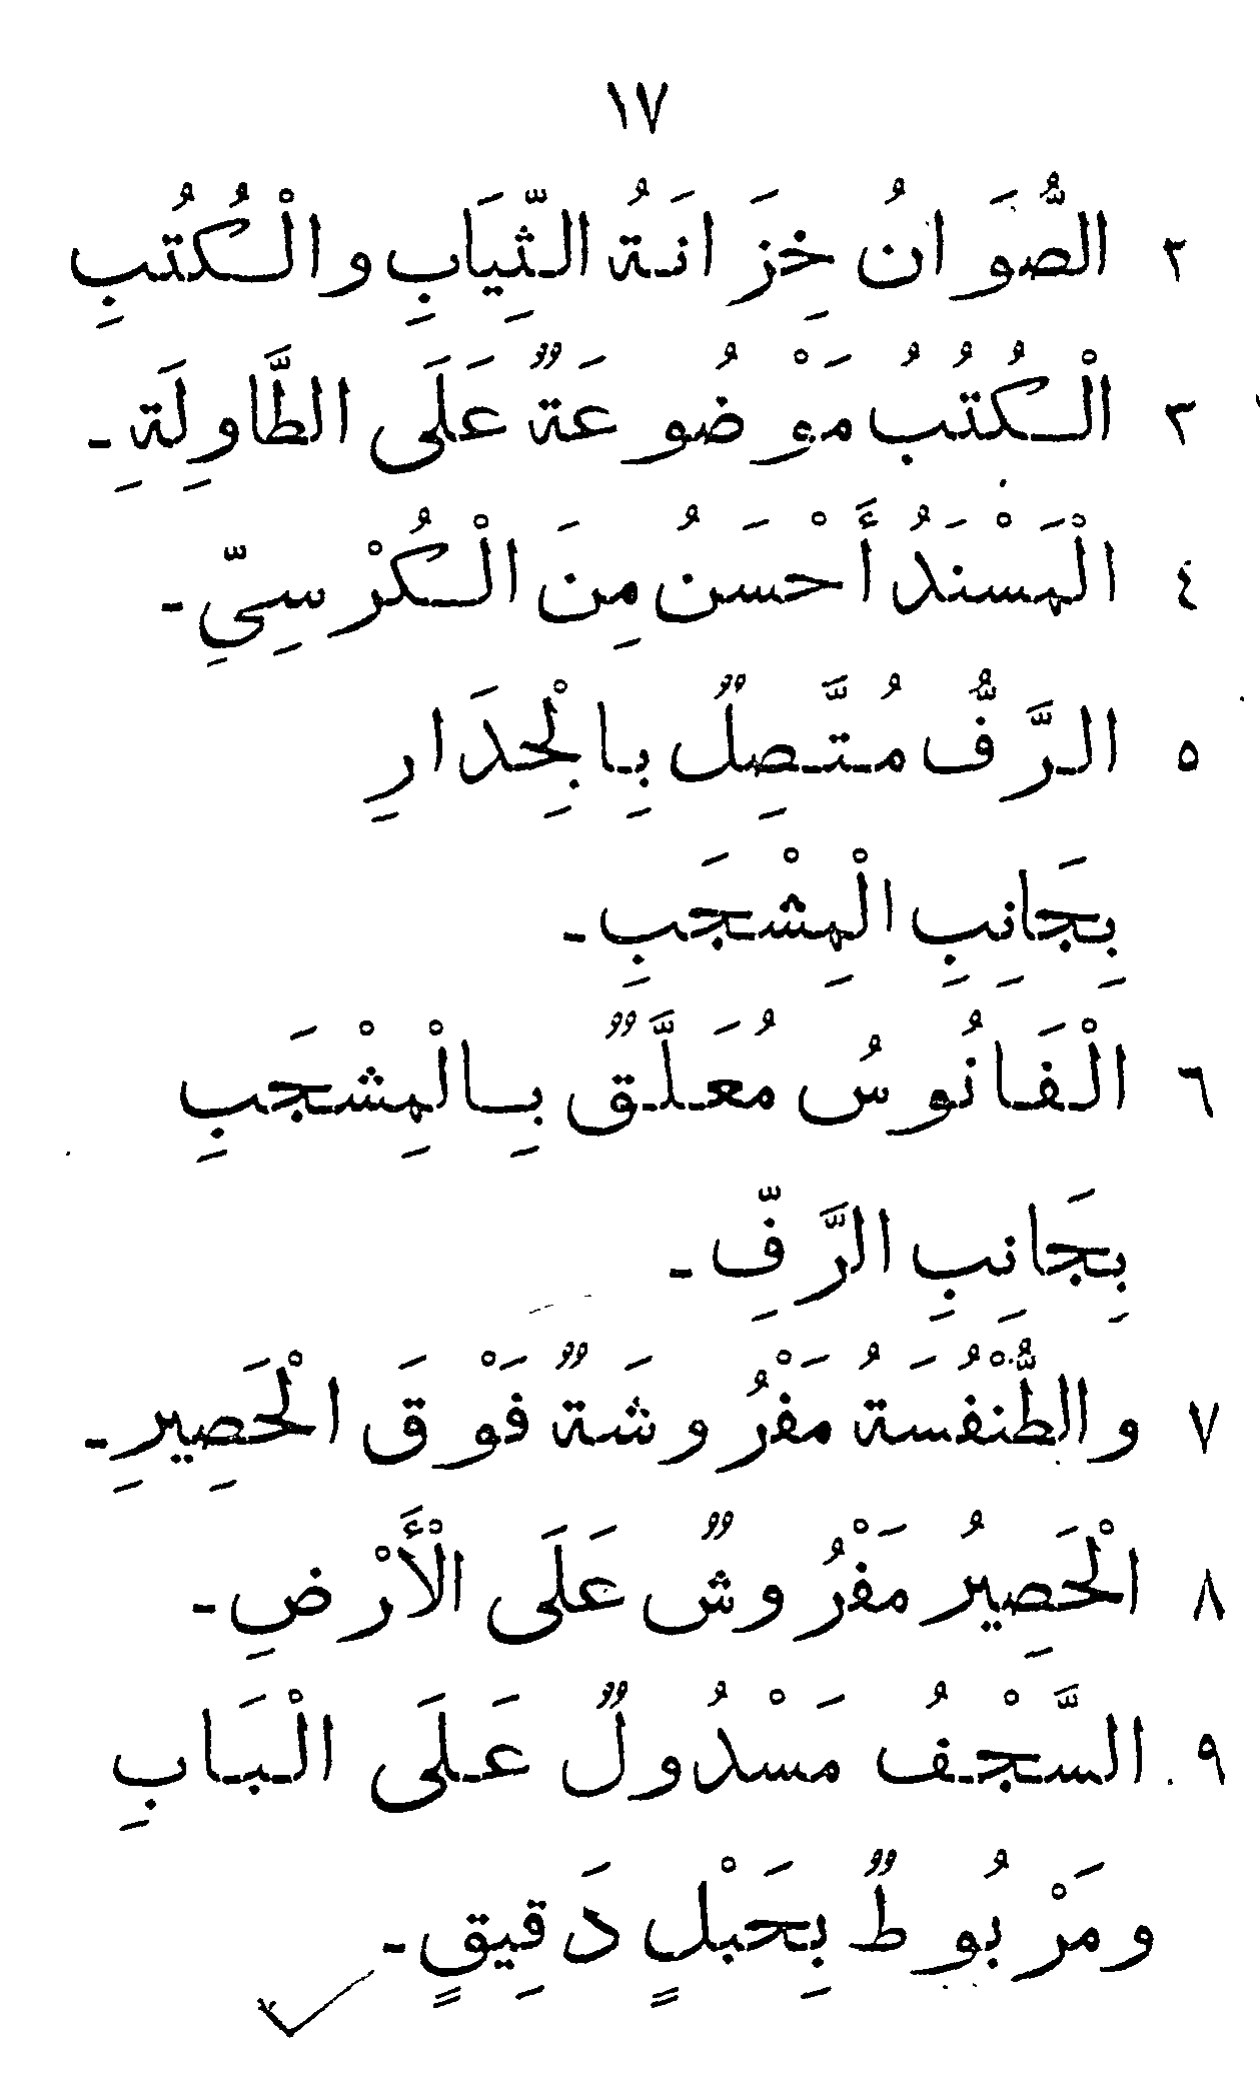 ١٧
٢ الصُّوَانُ خِزَانَةُ الثِّيَابِ والْكُتُبِ
٣ الْكُتُبُ مَوْضُوعَةٌ عَلَى الطَّاوِلَةِ ـ
٤ الْمَسْنَدُ أَحْسَنُ مِنَ الْكُرْسِيِّ ـ
٥ الرَّفُّ مُتَّصِلٌ بِالْجِدَارِ
بِجَانِبِ الْمِشْجَبِ ـ
٦ الْفَانُوسُ مُعَلَّقٌ بِالْمِشْجَبِ
بِجَانِبِ الرَّفِّ ـ
٧ والطُّنْفُسَةُ مَفْرُوشَةٌ فَوْقَ الْحَصِيرِ ـ
٨ الْحَصِيرُ مَفْرُوشٌ عَلَى الْأَرْضِ ـ
٩ السَّجْفُ مَسْدُولٌ عَلَى الْبَابِ
ومَرْبُوطٌ بِحَبْلٍ دَقِيقٍ ـ